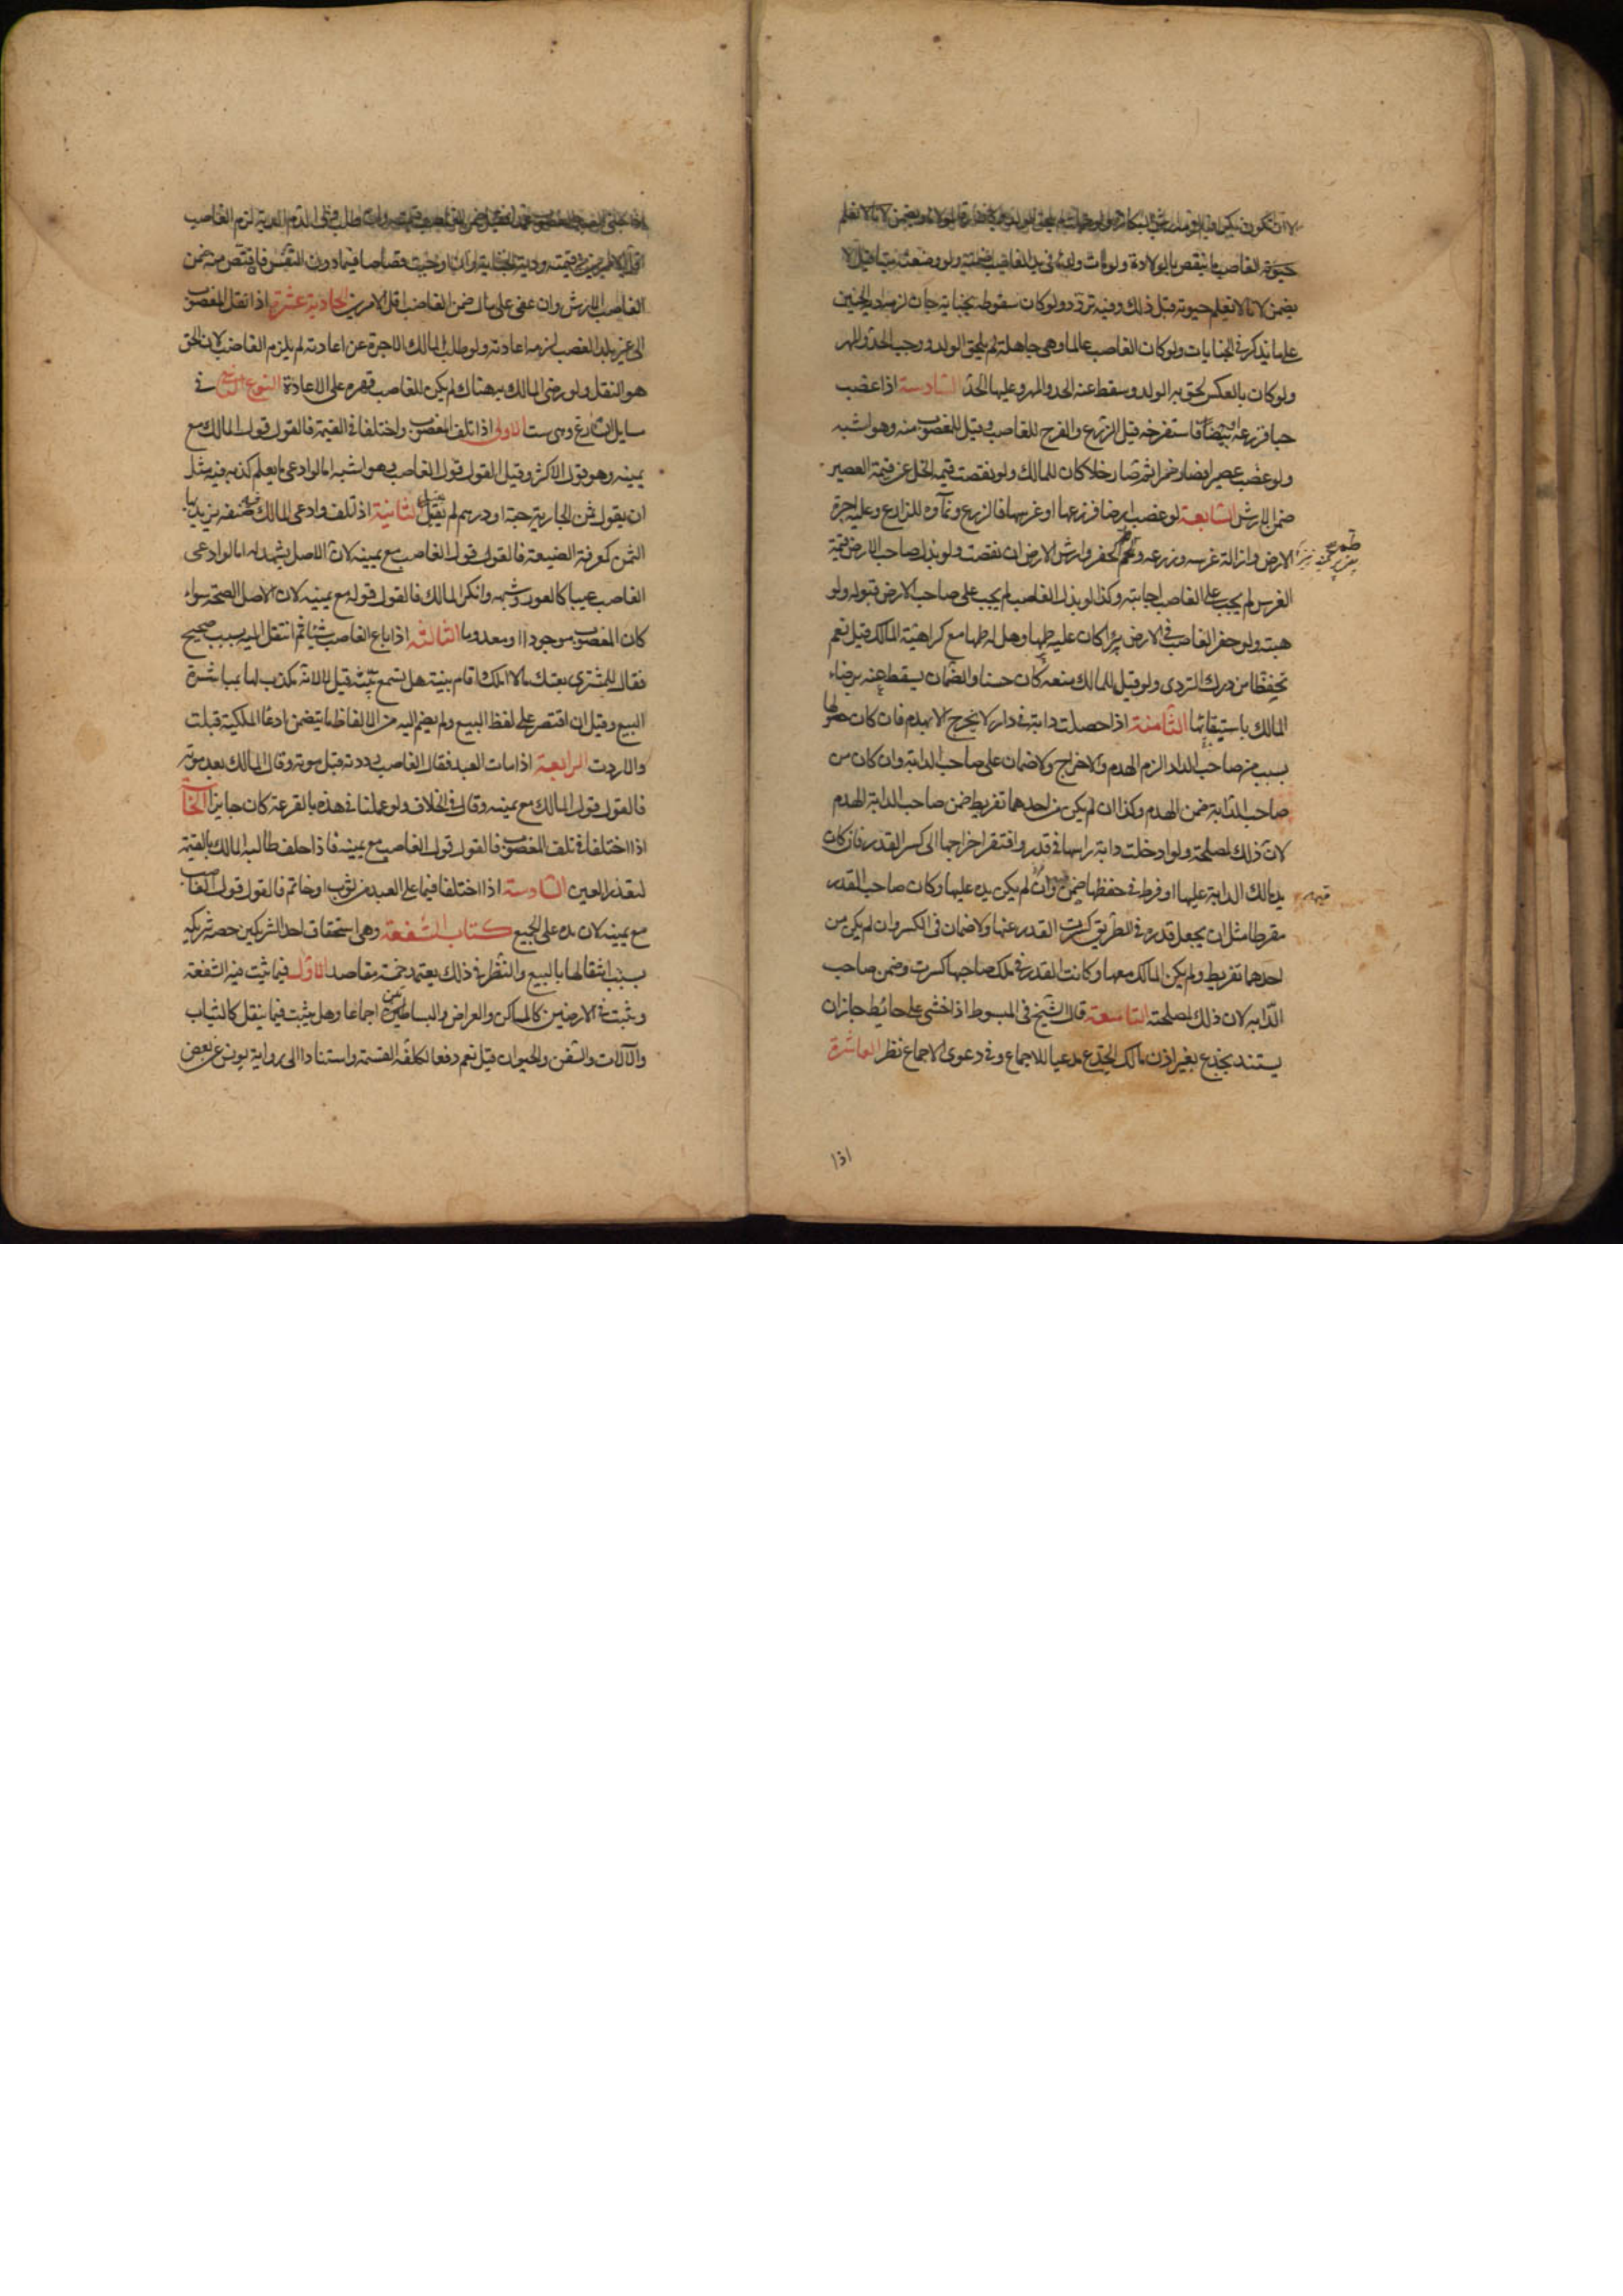 يضمن لانا لا نعلم حيوته قبل ذلك وفيه تردد ولو كان سقوطه بجناية جان لزمه دية الجنين
على ما نذكر في الجنايات ولو كان الغاصب عالما وهي جاهلة لم يلحق الولد ووجب الحد والمهر
ولو كان بالعكس لحق به الولد وسقط عنه الحد والمهر وعليها الحد السادسة اذا غصب
حبا فزرعه او بيضا فاستفرخه قيل الزرع والفرخ للغاصب وقيل للمغصوب منه وهو اشبه
ولو غصب عصيرا فصار خمرا ثم صار خلا كان للمالك ولو نقصت قيمة الخل عن قيمة العصير
ضمن الارش السابعة لو غصب ارضا فزرعها او غرسها فالزرع ونماؤه للزارع وعليه اجرة
الارض وازالة غرسه وزرعه وطم الحفر وارش الارض ان نقصت ولو بذل صاحب الارض قيمة
الغرس لم يجب على الغاصب اجابته وكذا لو بذل الغاصب لم يجب على صاحب الارض قبوله ولو
هبته ولو حفر الغاصب في الارض بئرا كان عليه طمها وهل له طمها مع كراهية المالك قيل نعم
تحفظا من درك التردى ولو قيل للمالك منعه كان حسنا والضمان يسقط عنه برضاء
المالك باستبقائها الثامنة اذا حصلت دابة في دار لا يخرج الا بهدم فان كان حصولها
بسبب من صاحب الدار الزم الهدم والاخراج ولا ضمان على صاحب الدابة وان كان من
صاحب الدابة ضمن الهدم وكذا ان لم يكن من احدهما تفريط ضمن صاحب الدابة الهدم
لان ذلك لمصلحته ولو ادخلت دابة راسها في قدر وافتقر اخراجها الى كسر القدر فان كان
يد مالك الدابة عليها او فرط في حفظها ضمن وان لم يكن يده عليها وكان صاحب القدر
مفرطا مثل ان يجعل قدره في الطريق كسرت القدر عنها ولا ضمان في الكسر وان لم يكن من
احدهما تفريط ولم يكن المالك معها وكانت القدر في ملك صاحبها كسرت وضمن صاحب
الدابة لان ذلك لمصلحته التاسعة قال الشيخ في المبسوط اذا خشى على حائط جاز ان
يستند بجذع بغير اذن مالك الجذع مدعيا للاجماع وفي دعوى الاجماع نظر العاشرة
اذا
الغاصب الارش وان عفى على مال ضمن الغاصب اقل الامرين الحادية عشرة اذا نقل المغصوب
الى غير بلد الغصب لزمه اعادته ولو طلب المالك الاجرة عن اعادته لم يلزم الغاصب لان الحق
هو النقل ولو رضى المالك به هناك لم يكن للغاصب قهره على الاعادة النوع الرابع في
مسايل التنازع وهى ست الاولى اذا تلف المغصوب واختلفا في القيمة فالقول قول المالك مع
يمينه وهو قول الاكثر وقيل القول قول الغاصب وهو اشبه اما لو ادعى ما يعلم كذبه فيه مثل
ان يقول ثمن الجارية حبة او درهم لم يقبل الثانية اذا تلف وادعى المالك صفة يزيد بها
الثمن كمعرفة الصنعة فالقول قول الغاصب مع يمينه لان الاصل يشهد له اما لو ادعى
الغاصب عيبا كالعور وشبهه وانكر المالك فالقول قوله مع يمينه لان الاصل الصحة سواء
كان المغصوب موجودا او معدوما الثالثة اذا باع الغاصب شيئا ثم انتقل اليه بسبب صحيح
فقال للمشترى بعتك ما لا املك واقام بينة هل تسمع بينته قيل لا لانه مكذب لها بمباشرة
البيع وقيل ان اقتصر على لفظ البيع ولم يضم اليه من الالفاظ ما يتضمن ادعاء الملكية قبلت
والا ردت الرابعة اذا مات العبد فقال الغاصب رددته قبل موته وقال المالك بعد موته
فالقول قول المالك مع يمينه وقال في الخلاف ولو عملنا في هذه بالقرعة كان جايزا الخامسة
اذا اختلفا في تلف المغصوب فالقول قول الغاصب مع يمينه فاذا حلف طالبه المالك بالقيمة
لتعذر العين السادسة اذا اختلفا فيما على العبد من ثوب او خاتم فالقول قول الغاصب
مع يمينه لان يده على الجميع كتاب الشفعة وهى استحقاق احد الشريكين حصة شريكه
بسبب انتقالها بالبيع والنظر في ذلك يعتمد خمسة مقاصد الاول فيما يثبت فيه الشفعة
وتثبت في الارضين كالمساكن والعراص والبساتين اجماعا وهل يثبت فيما ينقل كالثياب
والآلات والسفن والحيوان قيل نعم دفعا لكلفة القسمة واستنادا الى رواية يونس عن بعض